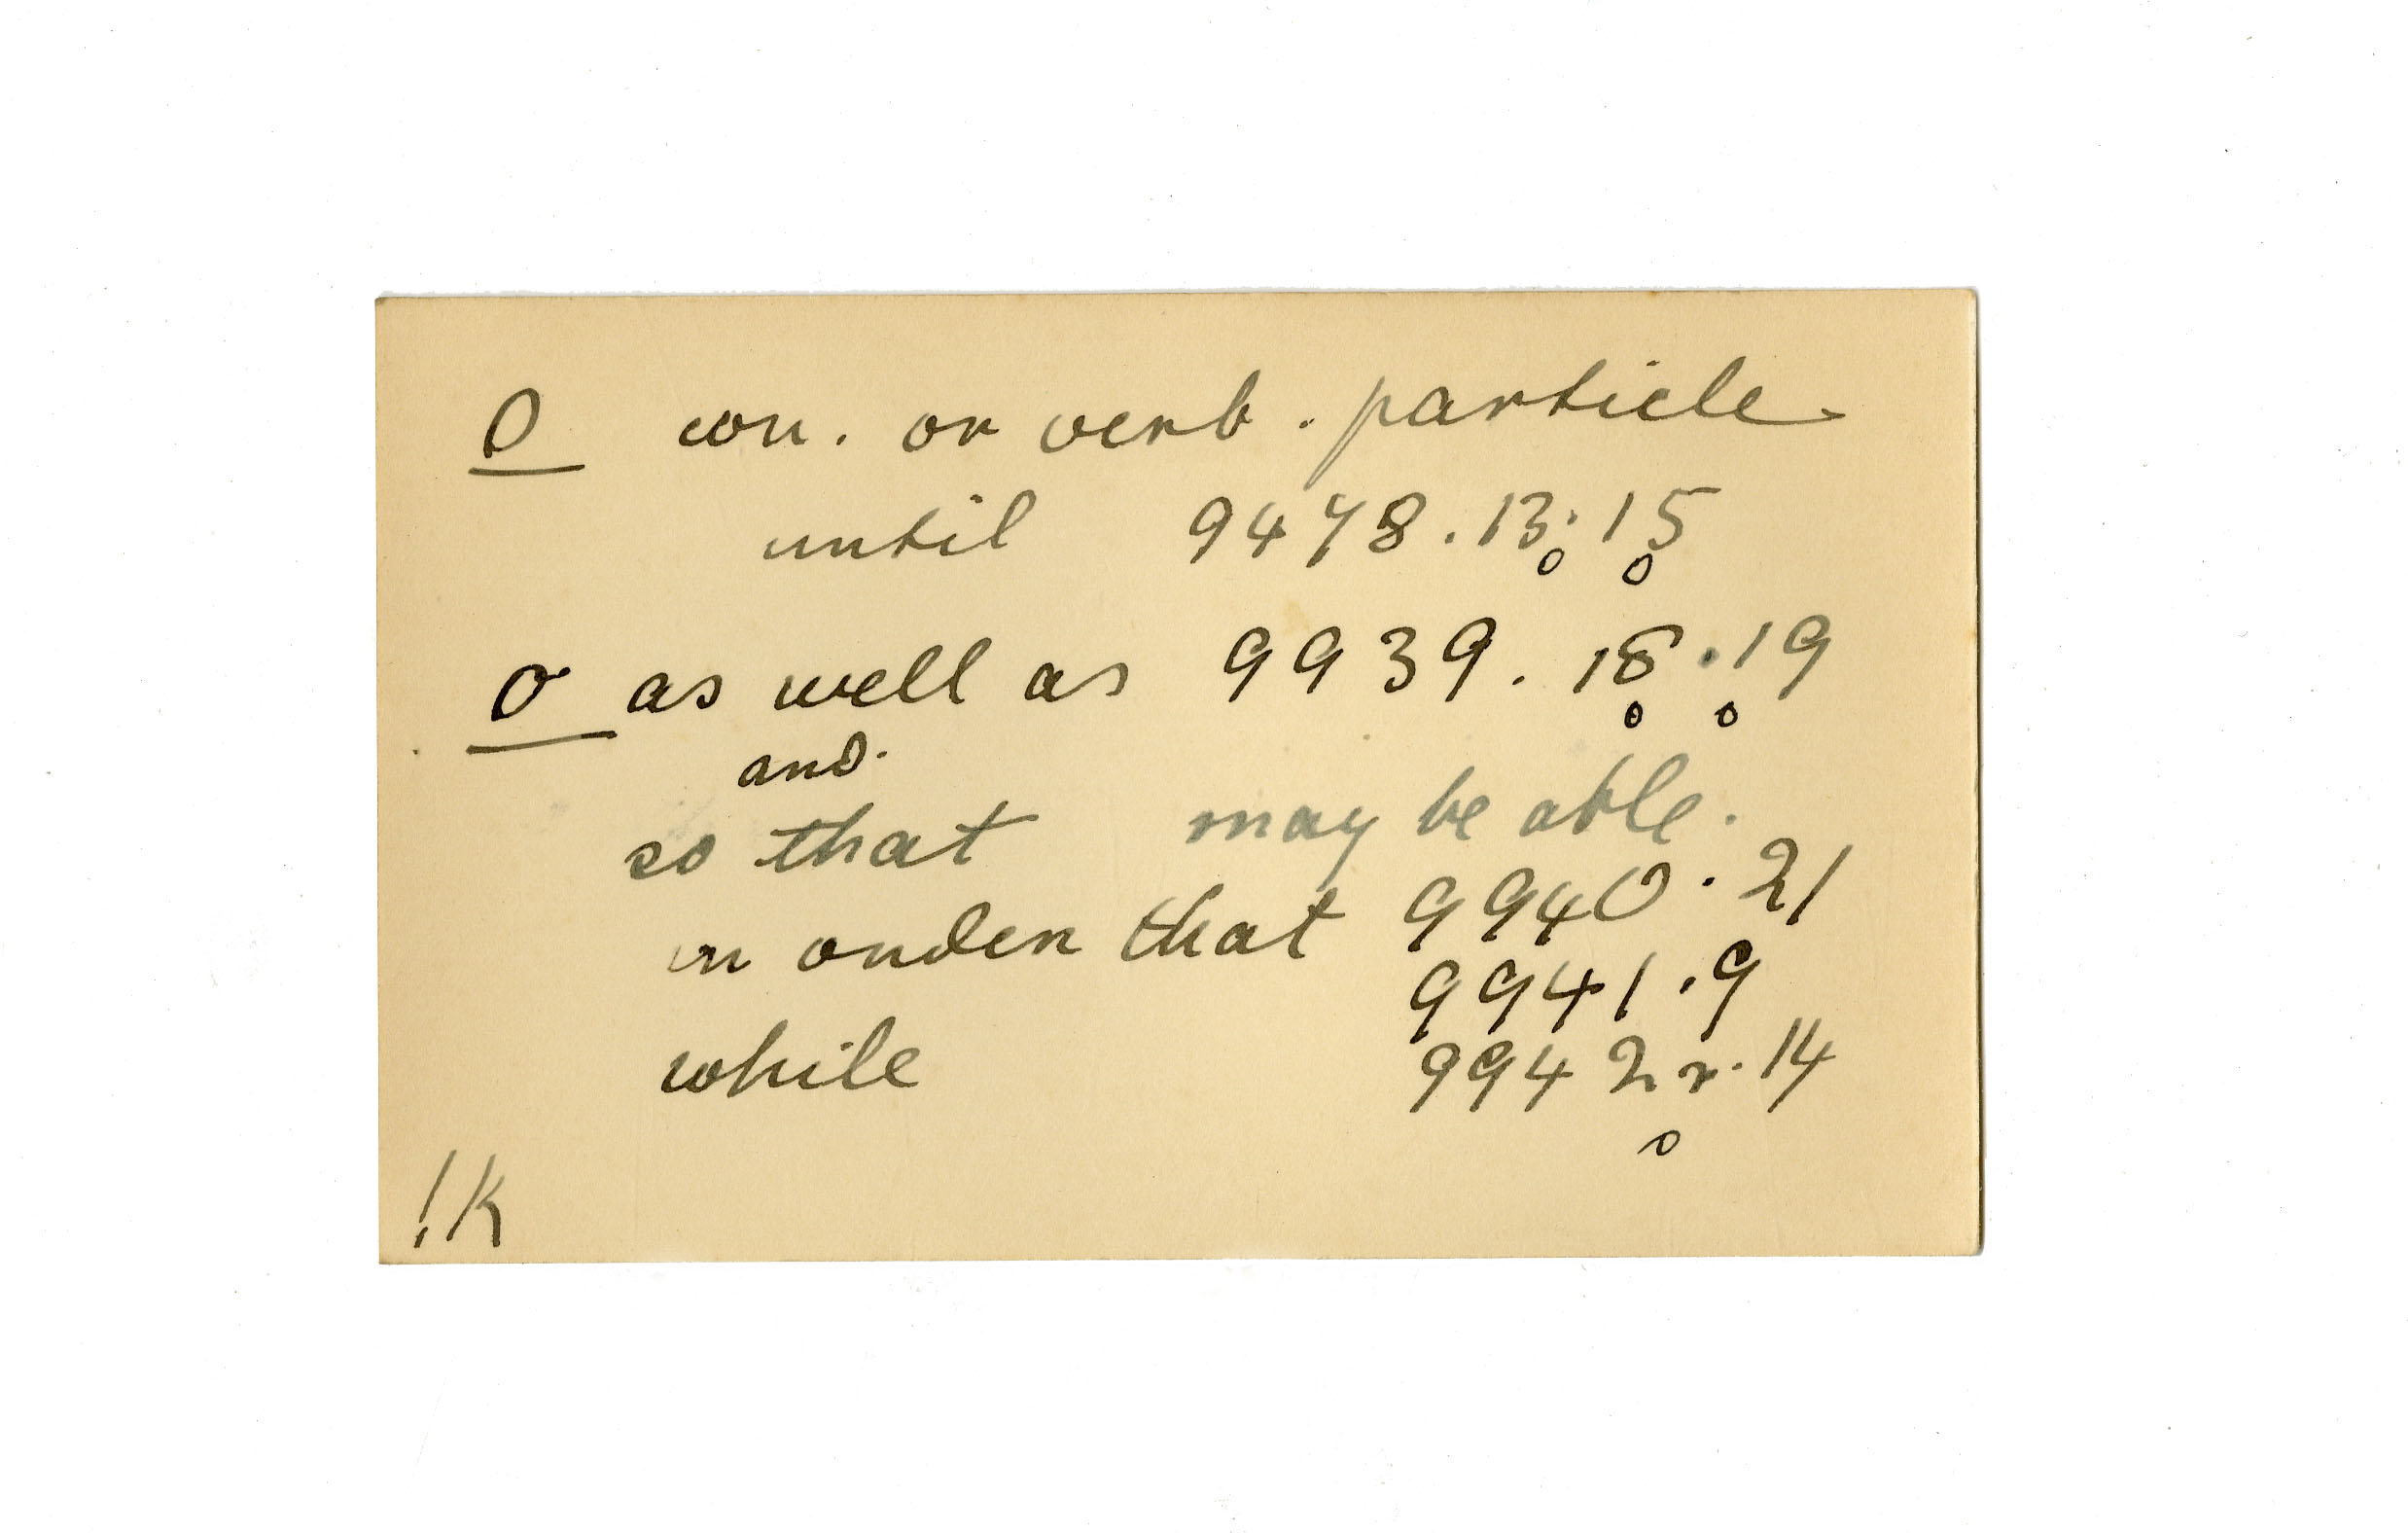 O con. or verb. particle.
until 9478.13.15
o o
o as well as 9939.18.19
o o
and.
so that may be able.
in order that 9940.21
9941.9
while 9942r.14
o
!K